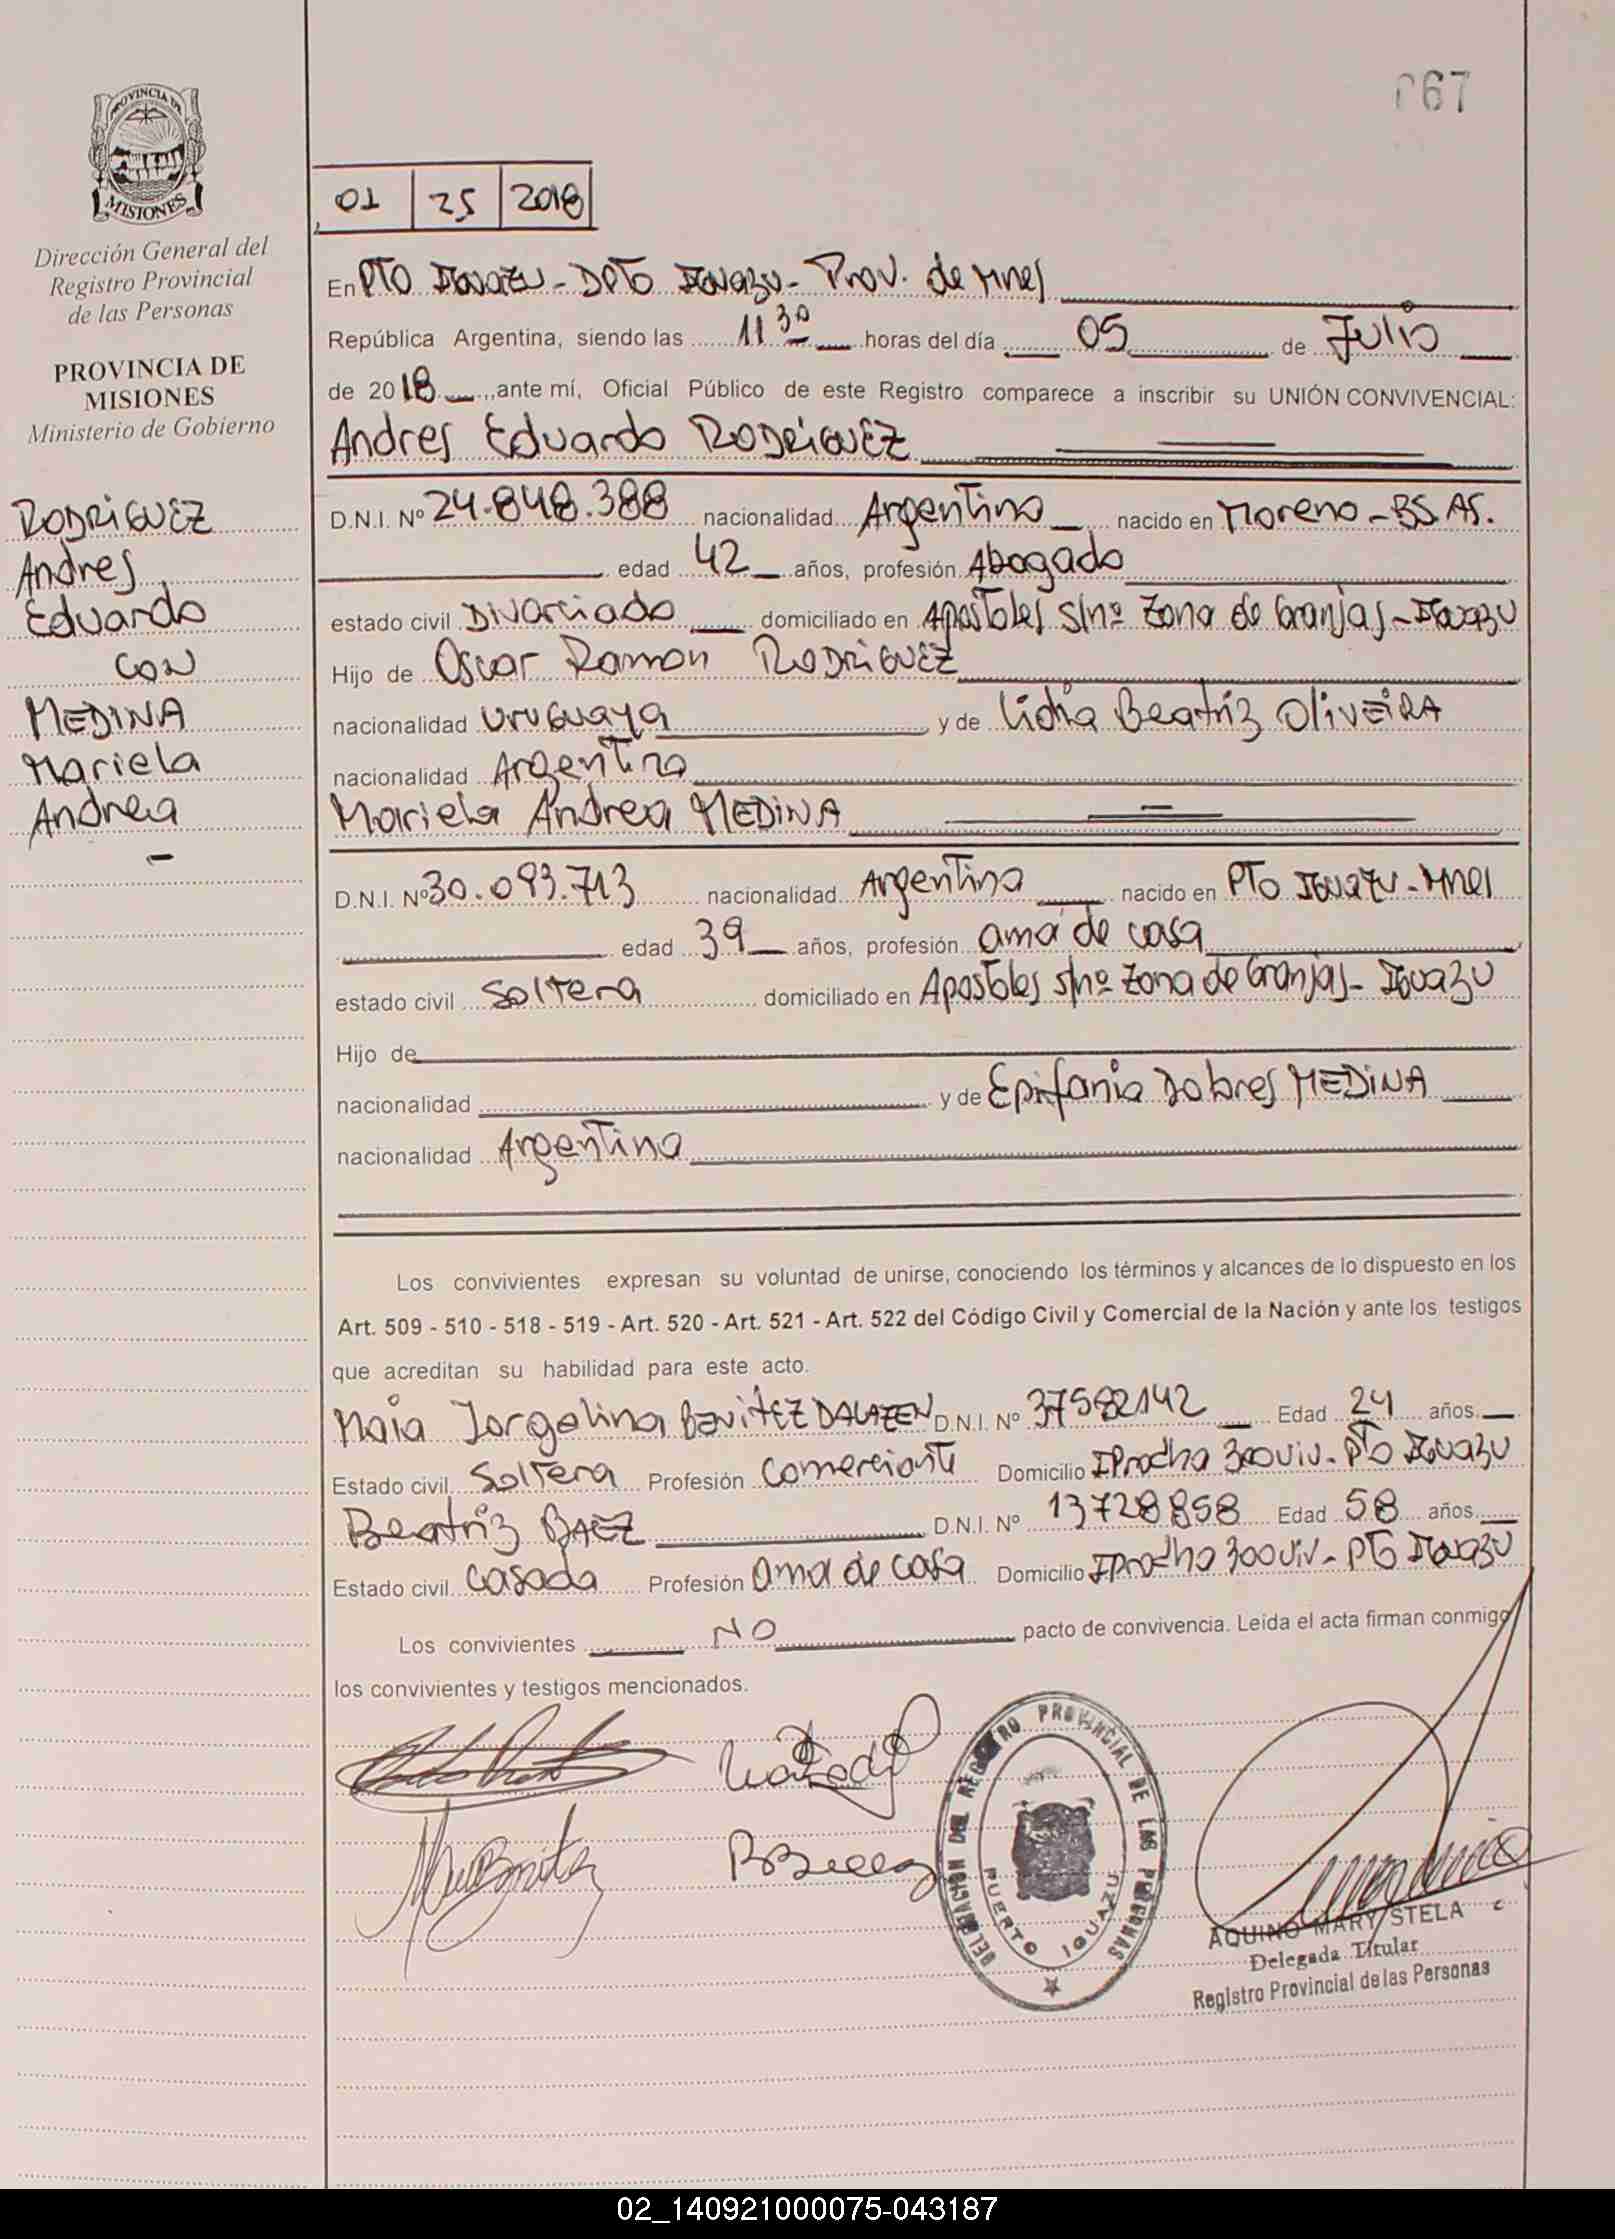 067
PROVINCIA DE
MISIONES
Dirección General del
Registro Provincial
de las Personas
PROVINCIA DE
MISIONES
Ministerio de Gobierno
RODRIGUEZ
Andres
Eduardo
CON
MEDINA
Mariela
Andrea
01 25 2018
En PTO IGUAZU - DPTO IGUAZU - Prov. de Mnes
República Argentina, siendo las 11 30 horas del día 05 de Julio
de 2018 ante mí, Oficial Público de este Registro comparece a inscribir su UNIÓN CONVIVENCIAL:
Andres Eduardo RODRIGUEZ
D.N.I. Nº 24.848.388 nacionalidad Argentino nacido en Moreno - BS. AS.
edad 42 años, profesión Abogado
estado civil Divorciado domiciliado en Apostoles s/nº Zona de Granjas - Iguazu
Hijo de Oscar Ramon RODRIGUEZ
nacionalidad Uruguaya y de Lidia Beatriz OLIVEIRA
nacionalidad Argentina
Mariela Andrea MEDINA
D.N.I. Nº 30.093.713 nacionalidad Argentina nacido en PTO IGUAZU - Mnes
edad 39 años, profesión ama de casa
estado civil Soltera domiciliado en Apostoles s/nº Zona de Granjas - Iguazu
Hijo de
nacionalidad y de Epifania Dolores MEDINA
nacionalidad Argentina
Los convivientes expresan su voluntad de unirse, conociendo los términos y alcances de lo dispuesto en los
Art. 509 - 510 - 518 - 519 - Art. 520 - Art. 521 - Art. 522 del Código Civil y Comercial de la Nación y ante los testigos
que acreditan su habilidad para este acto.
Maia Jorgelina BENITEZ DALAZEN D.N.I. Nº 37582142 Edad 24 años.
Estado civil Soltera Profesión Comerciante Domicilio IProdha 300 viv - PTO IGUAZU
Beatriz BAEZ D.N.I. Nº 13728858 Edad 58 años.
Estado civil Casada Profesión Ama de casa Domicilio IProdha 300 viv - PTO IGUAZU
Los convivientes NO pacto de convivencia. Leída el acta firman conmigo
los convivientes y testigos mencionados.
DELEGACIÓN DEL REGISTRO PROVINCIAL DE LAS PERSONAS
PUERTO IGUAZU
AQUINO MARY STELA
Delegada Titular
Registro Provincial de las Personas
02_140921000075-043187